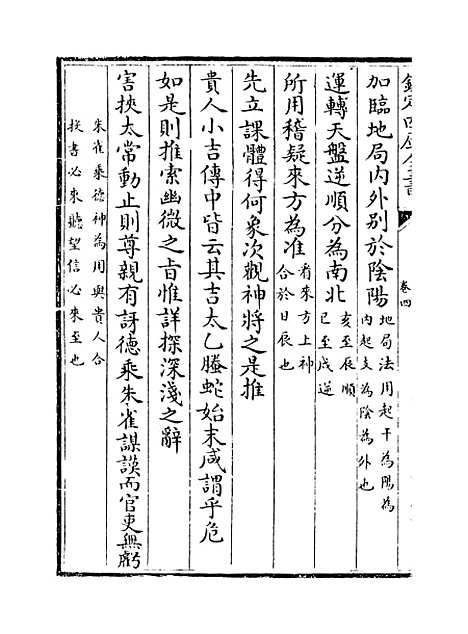 欽定四庫全書
卷四
加臨地局内外别於陰陽
地局法用起干為陽為
内起支為陰為外也
運轉天盤逆順分為南北
亥至辰順
巳至戌逆
所用稽疑來方為准
看來方上神
合於日辰也
先立課體得何象次觀神將之是推
貴人小吉傳中皆云其吉太乙螣蛇始末咸謂乎危
如是則推索幽微之旨惟詳探深淺之辭
害挾太常動止則尊親有訝德乘朱雀謀謨而官吏無虧
朱雀乘德神為用與貴人合
投書必來聽望信必來至也